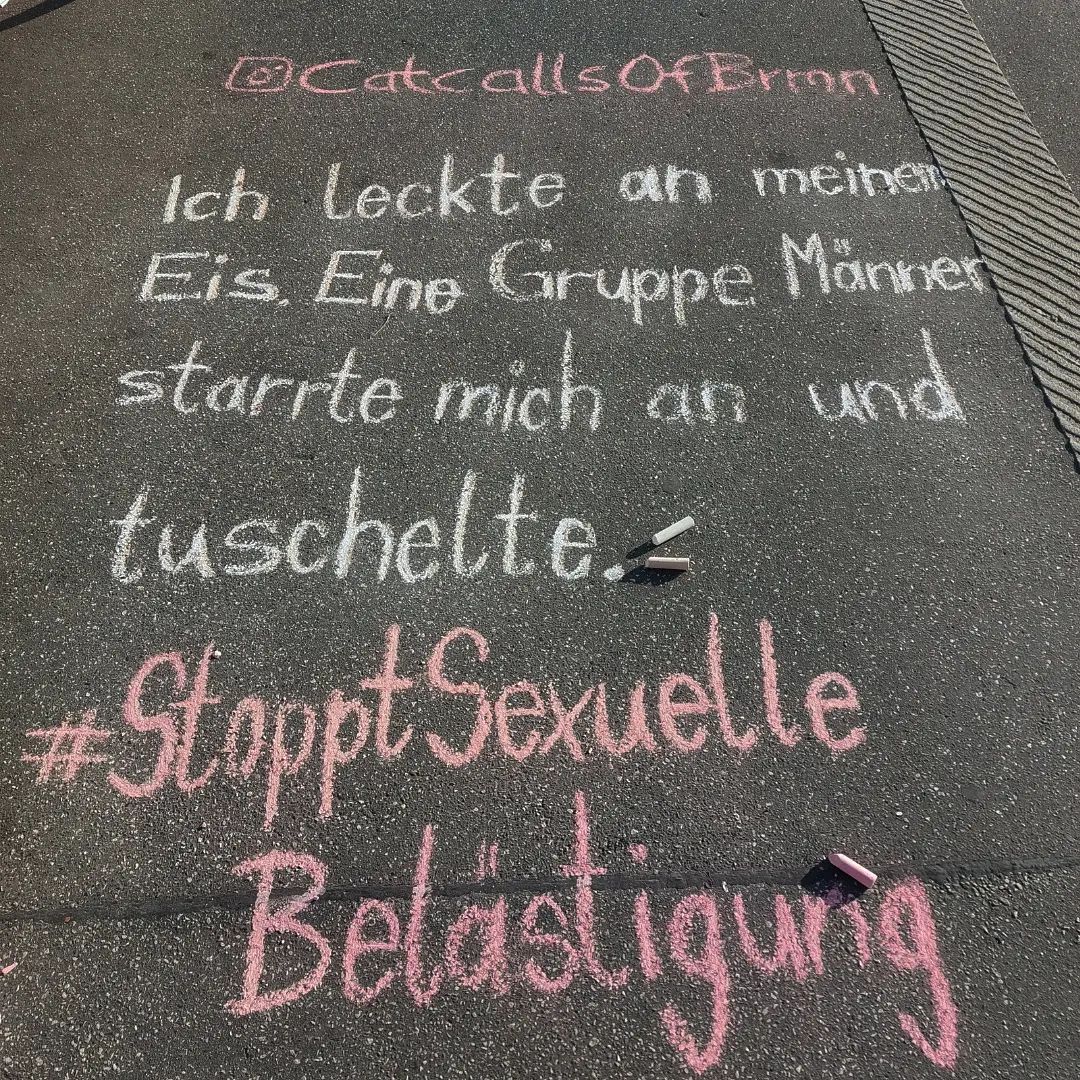 @CatcallsOfBrmn
Ich leckte an meinem
Eis. Eine Gruppe Männer
starrte mich an und
tuschelte.
#StopptSexuelle
Belästigung